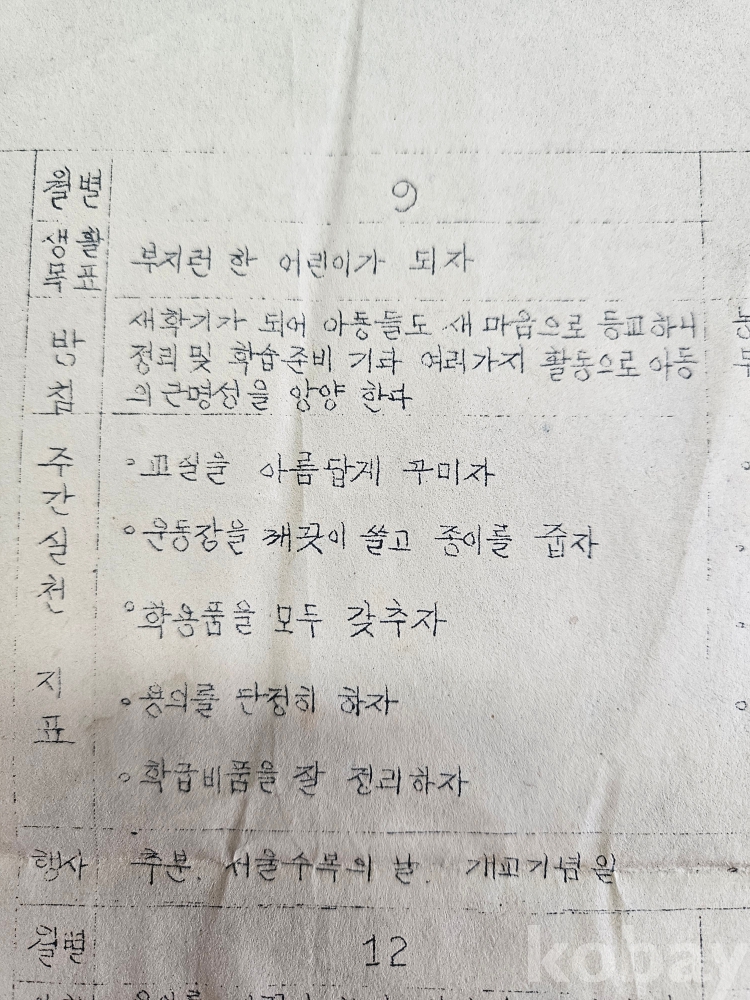 월별 9
생활
목표 부지런 한 어린이가 되자
방침 새학기가 되어 아동들도 새 마음으로 등교하니
정리 및 학습준비 기타 여러가지 활동으로 아동
의 근명성을 앙양 한다
주간실천지표
◦교실을 아름답게 꾸미자
◦운동장을 깨끗이 쓸고 종이를 줍자
◦학용품을 모두 갖추자
◦용의를 단정히 하자
◦학급비품을 잘 정리하자
행사 추분. 서울수복의 날. 개교기념일
월별 12
kobay